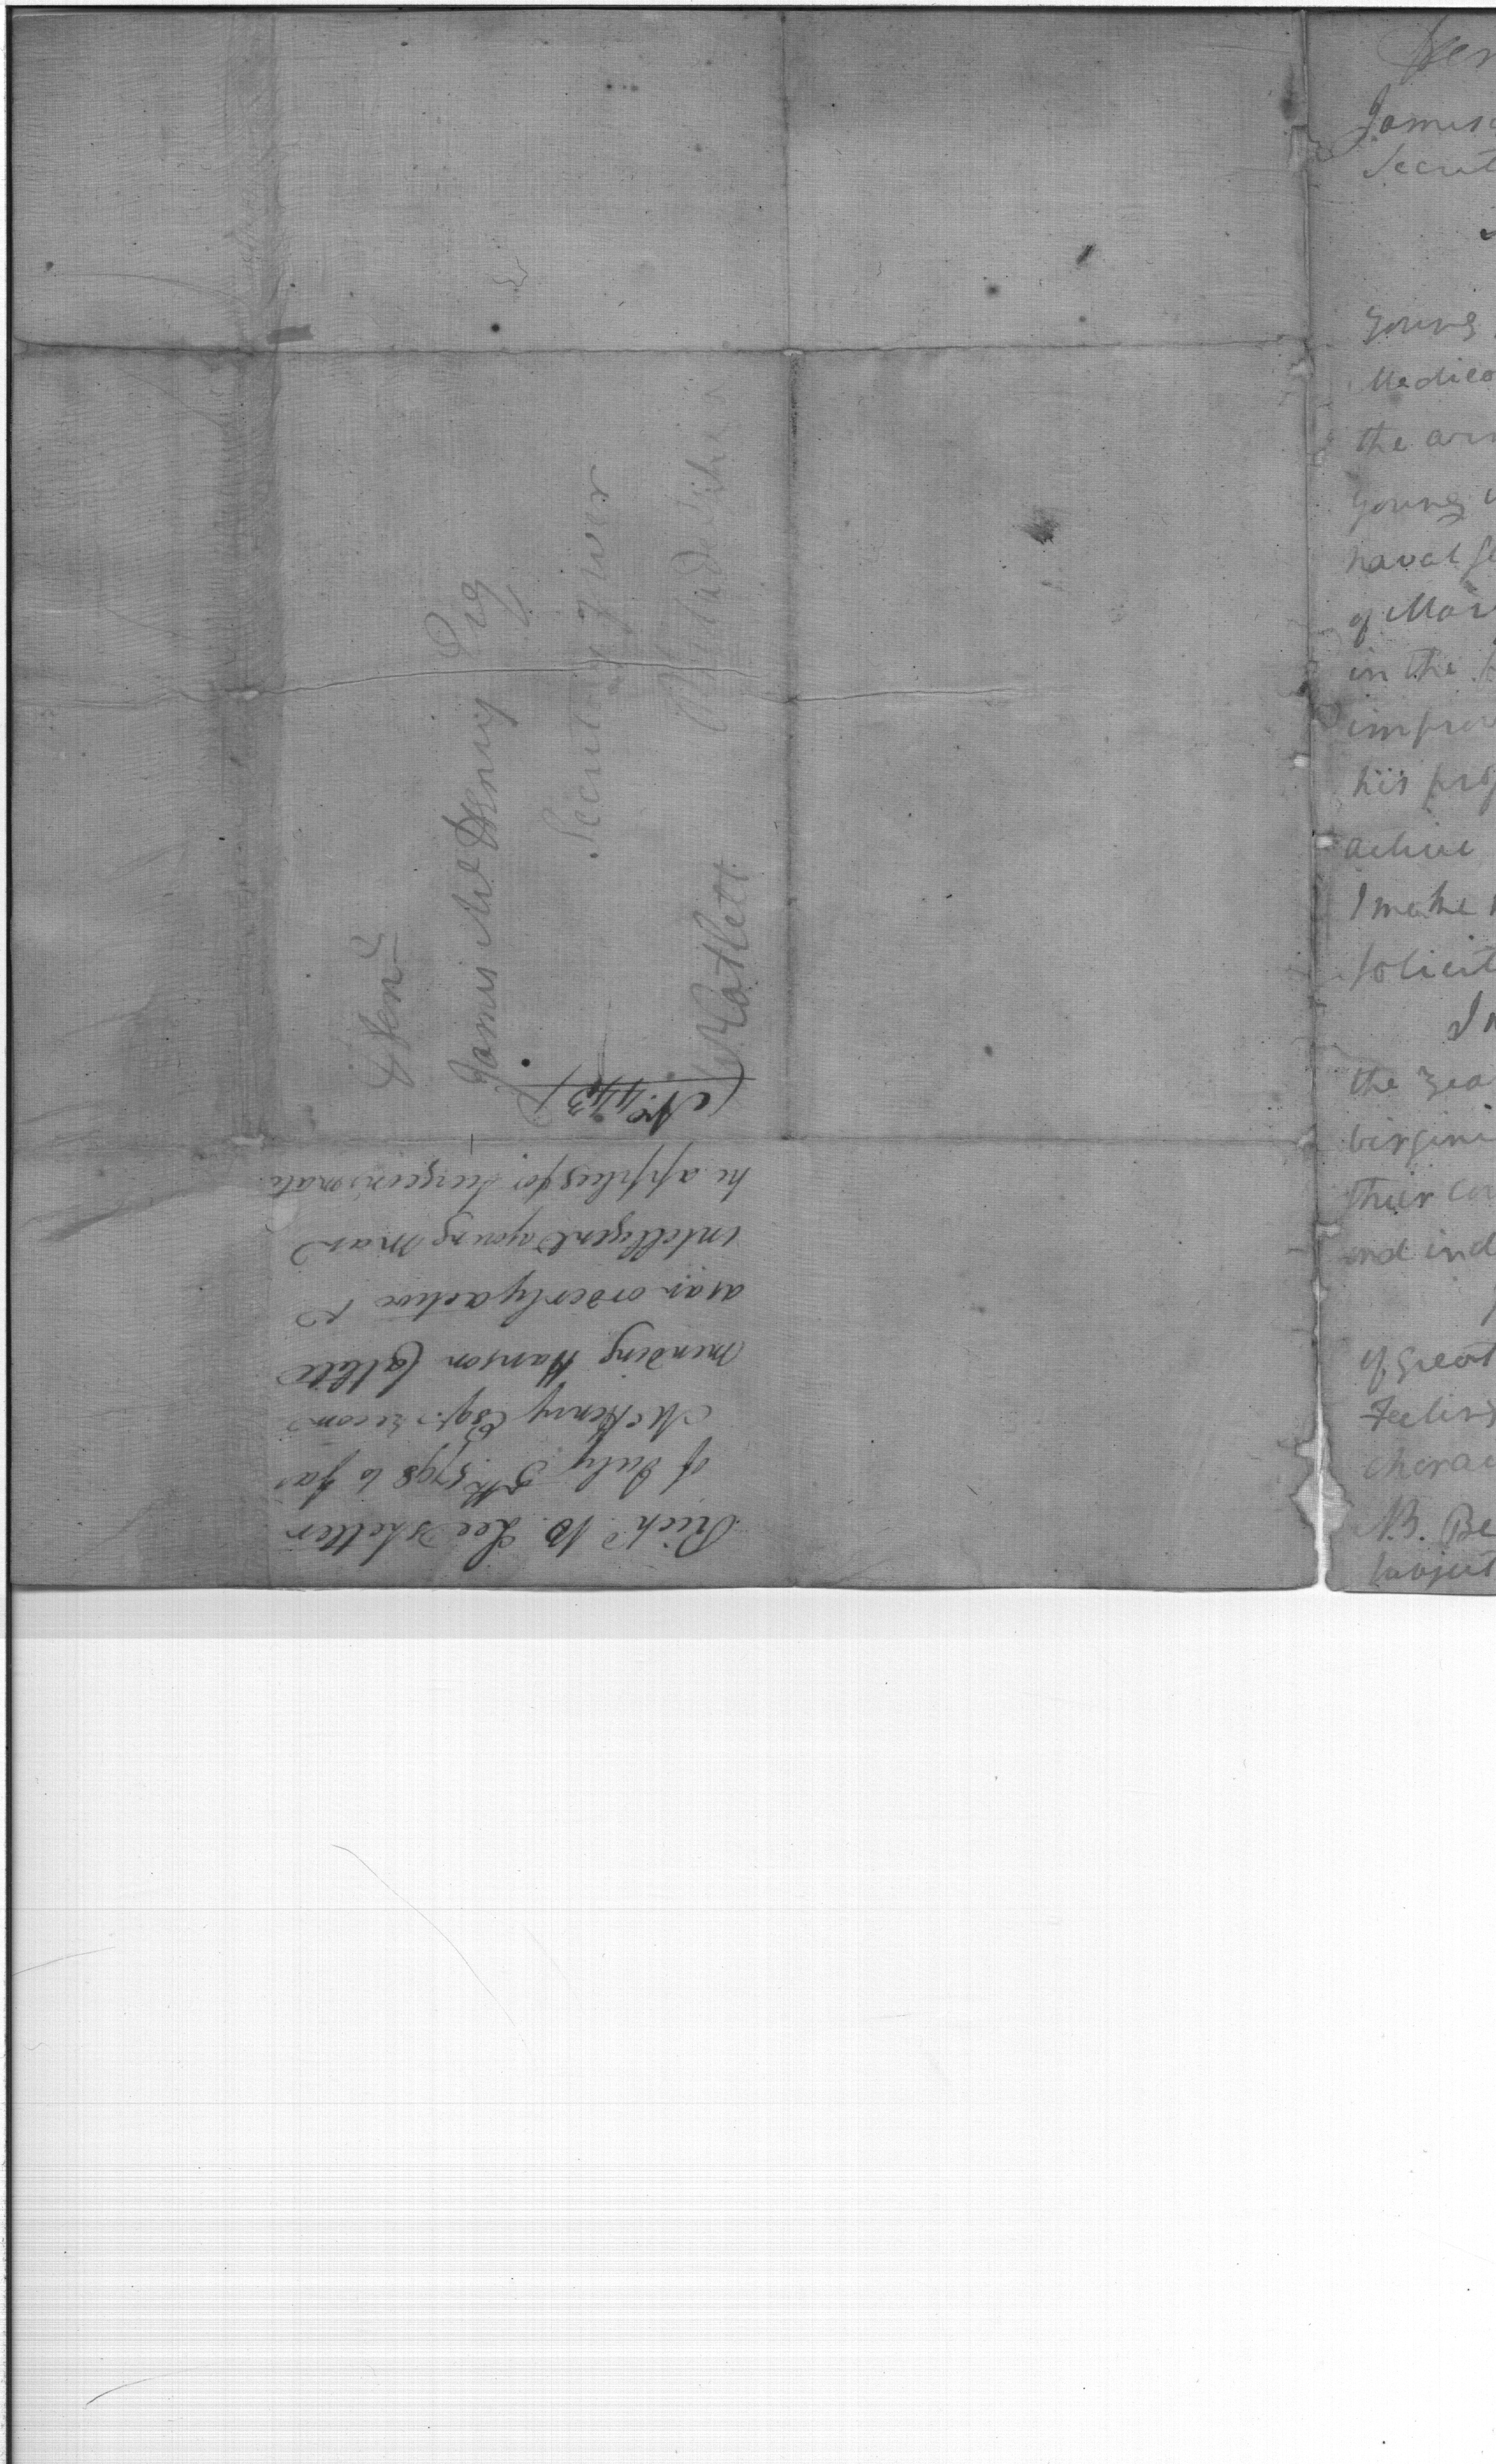 Honble
James McHenry Esq
Secretary of war
Philadelphia
Mr Catlett
Rich.d B. Lee's letter
of July 5th 1798 to Jas
McHenry Esqr. recom-
mending Hanson Catlett
as an orderly active &
intelligent young man
he applies for Surgeons mate
No.
Hon
James
Secret
young
Medica
the arm
young
naval
of Mar
in the
improv
his prof
active
I make
solicit
the zea
virgini
their co
and ind
of great
Feelings
charac
N.B. Be
subject